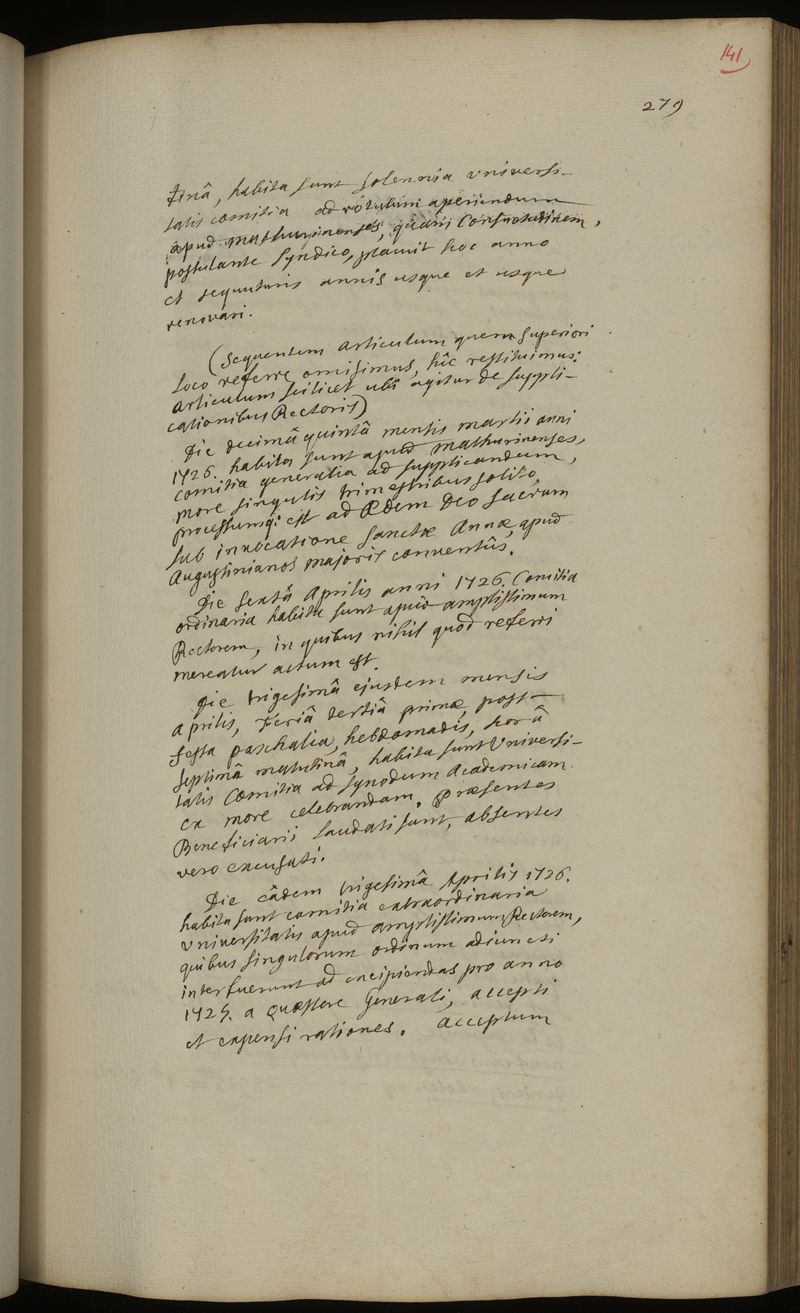 141
279
tinâ, habita sunt solennia universi-
tatis comitia ad rotulum aperiendum
apud mathurinenses, quam Consuetudinem,
postulante Syndico, placuit hoc anno
et sequuturis annis usque et usque
renovari.
(Sequentem articulum quem superiori
loco referre omisimus, hîc restituimus:
articulum scilicet ubi agitur de suppli-
cationibus Rectoris)
Die decimâ quintâ mensis martii anni
1726. habita sunt apud mathurinenses,
comitia generalia ad supplicandum,
more singulis trimestribus solito,
processumq; est ad Ædem Deo sacram
sub invocatione Sanctæ Annæ, apud
Augustinianos majoris conventûs.
Die sextâ Aprilis anni 1726. Comitia
ordinaria habita sunt apud amplissimum
Rectorem, in quibus nihil quod referri
mereatur actum est.
Die trigesimâ ejusdem mensis
aprilis, Feriâ tertiâ primæ, post
festa paschalia, hebdomadis, horâ
septimâ matutinâ, habita sunt Universi-
tatis Comitia ad synodum Academicam
ex more celebrandam. præsentes
Beneficiarii laudati sunt, absentes
vero excusati.
Die eâdem trigesimâ Aprilis 1726.
habita sunt comitia extraordinaria
universitatis apud amplissimum Rectorem,
quibus singulorum ordinum adiuncti
interfuerunt ad excipiendas pro anno
1725. a Quæstore Generali, accepti
et expensi rationes. acceptum